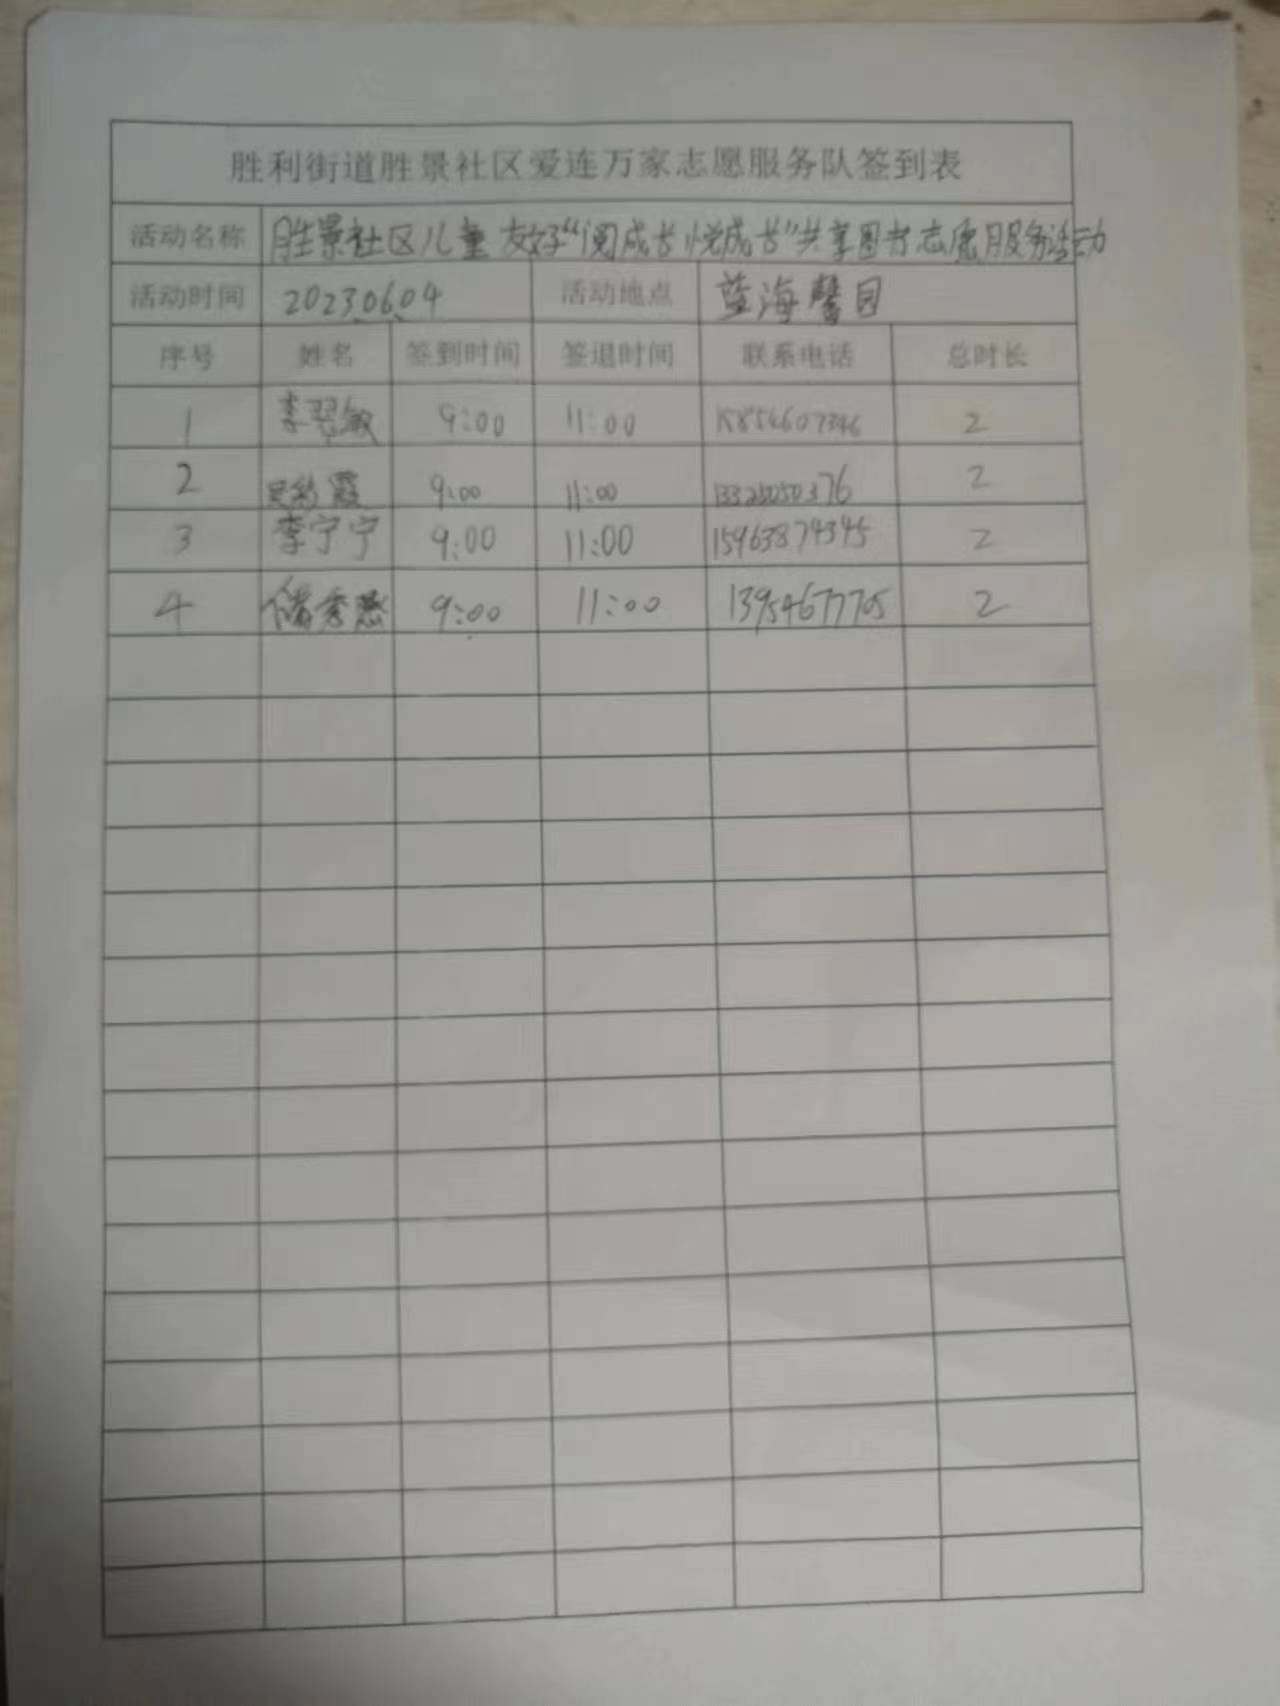 胜利街道胜景社区爱连万家志愿服务队签到表
活动名称 胜景社区儿童友好“阅成长悦成长”共享图书志愿服务活动
活动时间 20230604 活动地点 蓝海馨园
序号 姓名 签到时间 签退时间 联系电话 总时长
1 李翠敏 9:00 11:00 15854607346 2
2 霞 9:00 11:00 13325050376 2
3 李宁宁 9:00 11:00 15963874345 2
4 储秀燕 9:00 11:00 13954677705 2